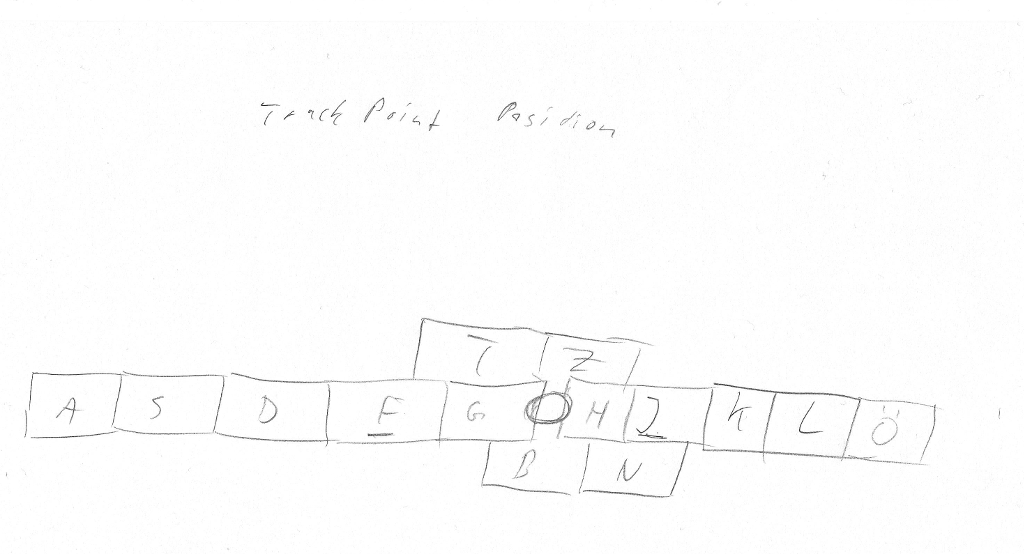 Track Point Position
T Z
A S D F G H J K L Ö
B N